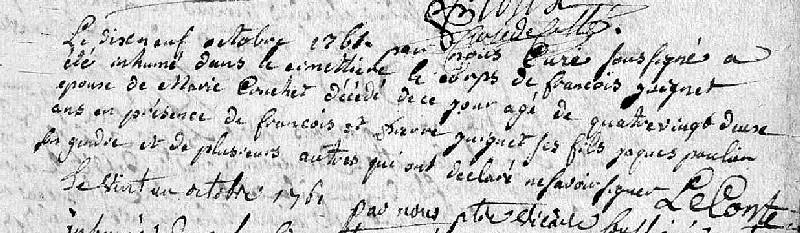 Le dixneuf octobre 1761 par nous Curé soussigné a
été inhumé dans le cimettiere le corps de francois guignet
epoux de Marie Cruchet décédé de ce jour agé de quatrevingt douse
ans en présence de francois et pierre guignet ses fils jaques paulin
son gendre et de plusieurs autres qui ont declaré ne savoir signer LeConte
Le vint un octobre 1761 par nous ptre vicaire
inhumé dans le